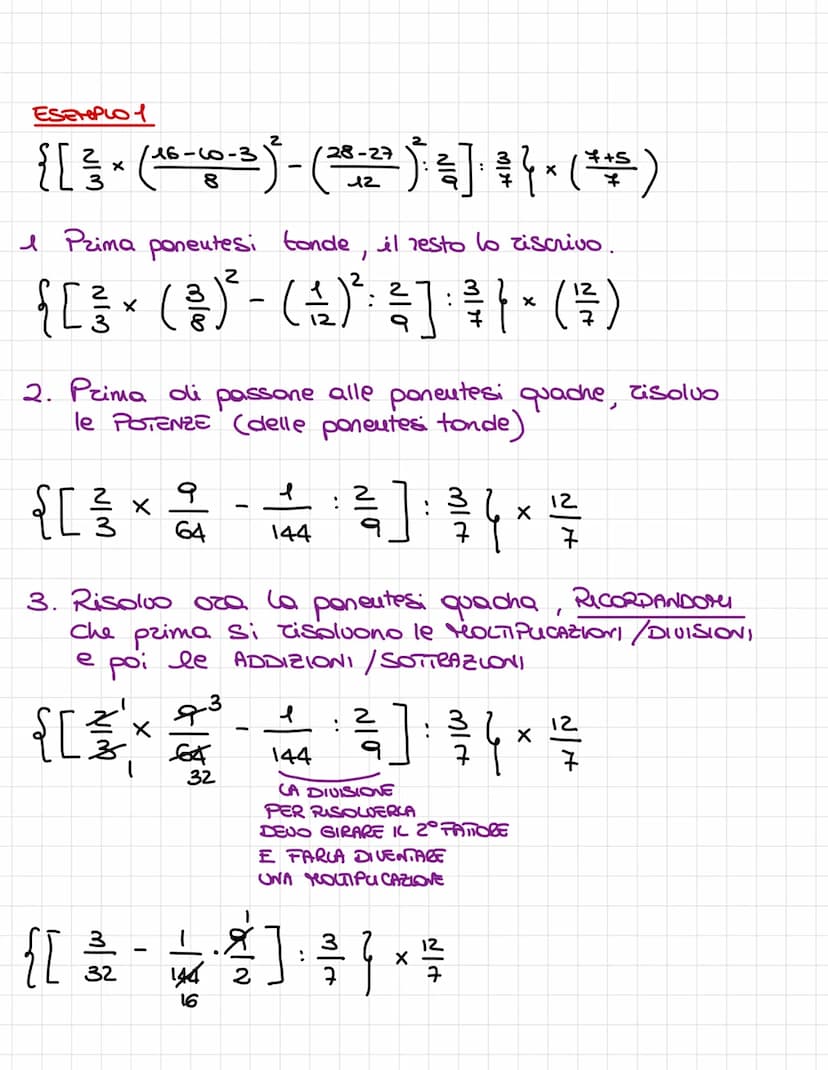 ESEMPIO 1
{[2/3 × ((16-10-3)/8)² - ((28-27)/12)² : 2/9] : 3/7} × ((7+5)/7)
1 Prima parentesi tonde, il resto lo riscrivo.
{[2/3 × (3/8)² - (1/12)² : 2/9] : 3/7} × (12/7)
2. Prima di passare alle parentesi quadre, risolvo
le POTENZE (delle parentesi tonde)
{[2/3 × 9/64 - 1/144 : 2/9] : 3/7} × 12/7
3. Risolvo ora la parentesi quadra, RICORDANDOMI
che prima si risolvono le MOLTIPLICAZIONI/DIVISIONI
e poi le ADDIZIONI/SOTTRAZIONI
{[2/3 × 9/64 - 1/144 : 2/9] : 3/7} × 12/7
1 1 3 32
LA DIVISIONE
PER RISOLVERLA
DEVO GIRARE IL 2° FATTORE
E FARLA DIVENTARE
UNA MOLTIPLICAZIONE
{[3/32 - 1/144 · 9/2] : 3/7} × 12/7
1 16